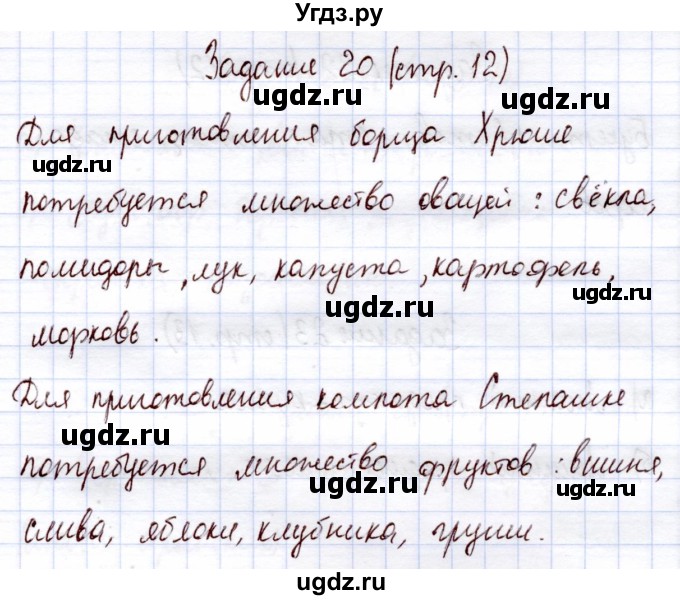 Угдз.ру
Задание 20 (стр. 12)
ugdz.ru ugdz.ru
Для приготовления борща Хрюше
ugdz.ru
потребуется множество овощей : свёкла,
помидоры, лук, капуста, картофель,
ugdz.ru ugdz.ru
морковь.
Для приготовления компота Степашке
ugdz.ru ugdz.ru
потребуется множество фруктов : вишня,
ugdz.ru ugdz.ru
слива, яблоки, клубника, груши.
ugdz.ru